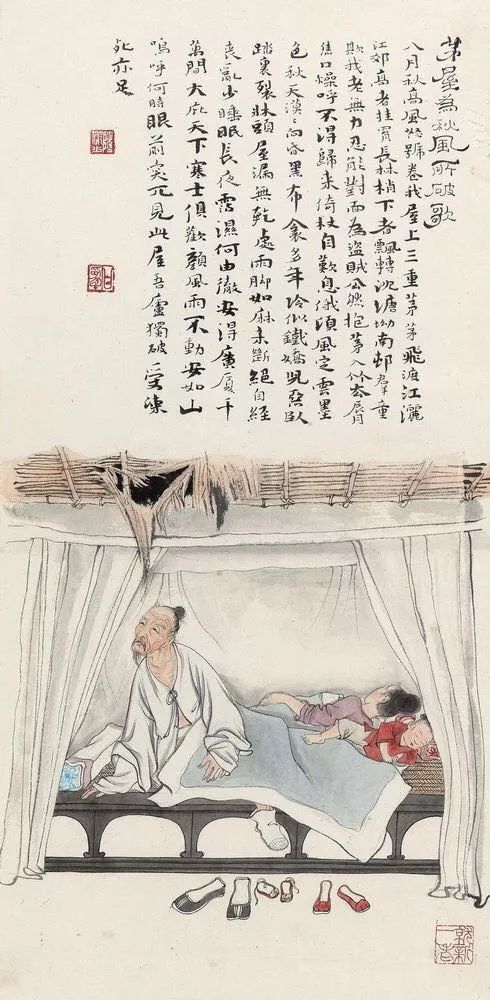 茅屋為秋風所破歌
八月秋高風怒號卷我屋上三重茅茅飛渡江灑
江郊高者挂罥長林梢下者飄轉沈塘坳南邨羣童
欺我老無力忍能對面為盜賊公然抱茅入竹去脣
焦口燥呼不得歸來倚杖自歎息俄頃風定雲墨
色秋天漠々向昏黑布衾多年冷似鐵嬌兒惡臥
踏裏裂牀頭屋漏無乾處雨脚如麻未斷絕自經
喪亂少睡眠長夜霑濕何由徹安得廣廈千
萬間大庇天下寒士俱歡顏風雨不動安如山
嗚呼何時眼前突兀見此屋吾廬獨破受凍
死亦足